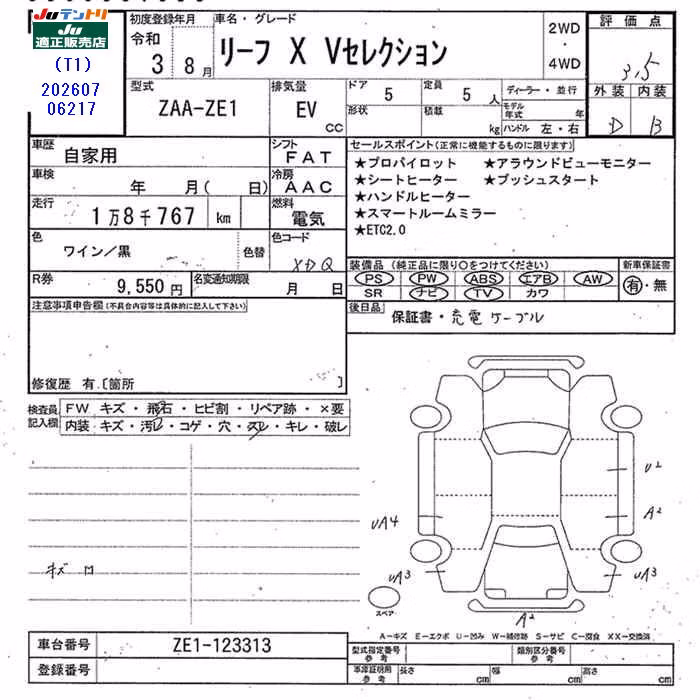 Juテントリ
Ju適正販売店
(T1)
202607
06217
初度登録年月
令和
3 8月
車名・グレード
リーフ X Vセレクション
2WD
・
4WD
評価点
3.5
外装 内装
D B
型式
ZAA-ZE1
排気量
EV
CC
ドア 5
定員 5 人
形状
積載 kg
ディーラー・並行
モデル年式 年
ハンドル 左・右
車歴
自家用
シフト
FAT
車検
年 月( 日)
冷房
AAC
走行
1万8千767 km
燃料
電気
色
ワイン/黒
色替
色コード
XDQ
R券
9,550円
名変通知期限
月 日
セールスポイント(正常に機能するものに限ります)
★プロパイロット ★アラウンドビューモニター
★シートヒーター ★プッシュスタート
★ハンドルヒーター
★スマートルームミラー
★ETC2.0
装備品(純正品に限り○をつけてください)
PS PW ABS エアB AW
SR ナビ TV カワ
新車保証書
有・無
後日品
保証書・充電ケーブル
注意事項申告欄(不具合内容等は具体的に記入して下さい)
修復歴 有.〔箇所 〕
検査員記入欄
FW キズ・飛石・ヒビ割・リペア跡・×要
内装 キズ・汚レ・コゲ・穴・スレ・キレ・破レ
キズ
U2
A2
UA4
UA3
UA3
スペア
A2
A-キズ E-エクボ U-凹み W-補修跡 S-サビ C-腐食 XX-交換済
車台番号
ZE1-123313
登録番号
型式指定番号
参考
類別区分番号
参考
車庫証明用
参考
長さ cm
幅 cm
高さ cm